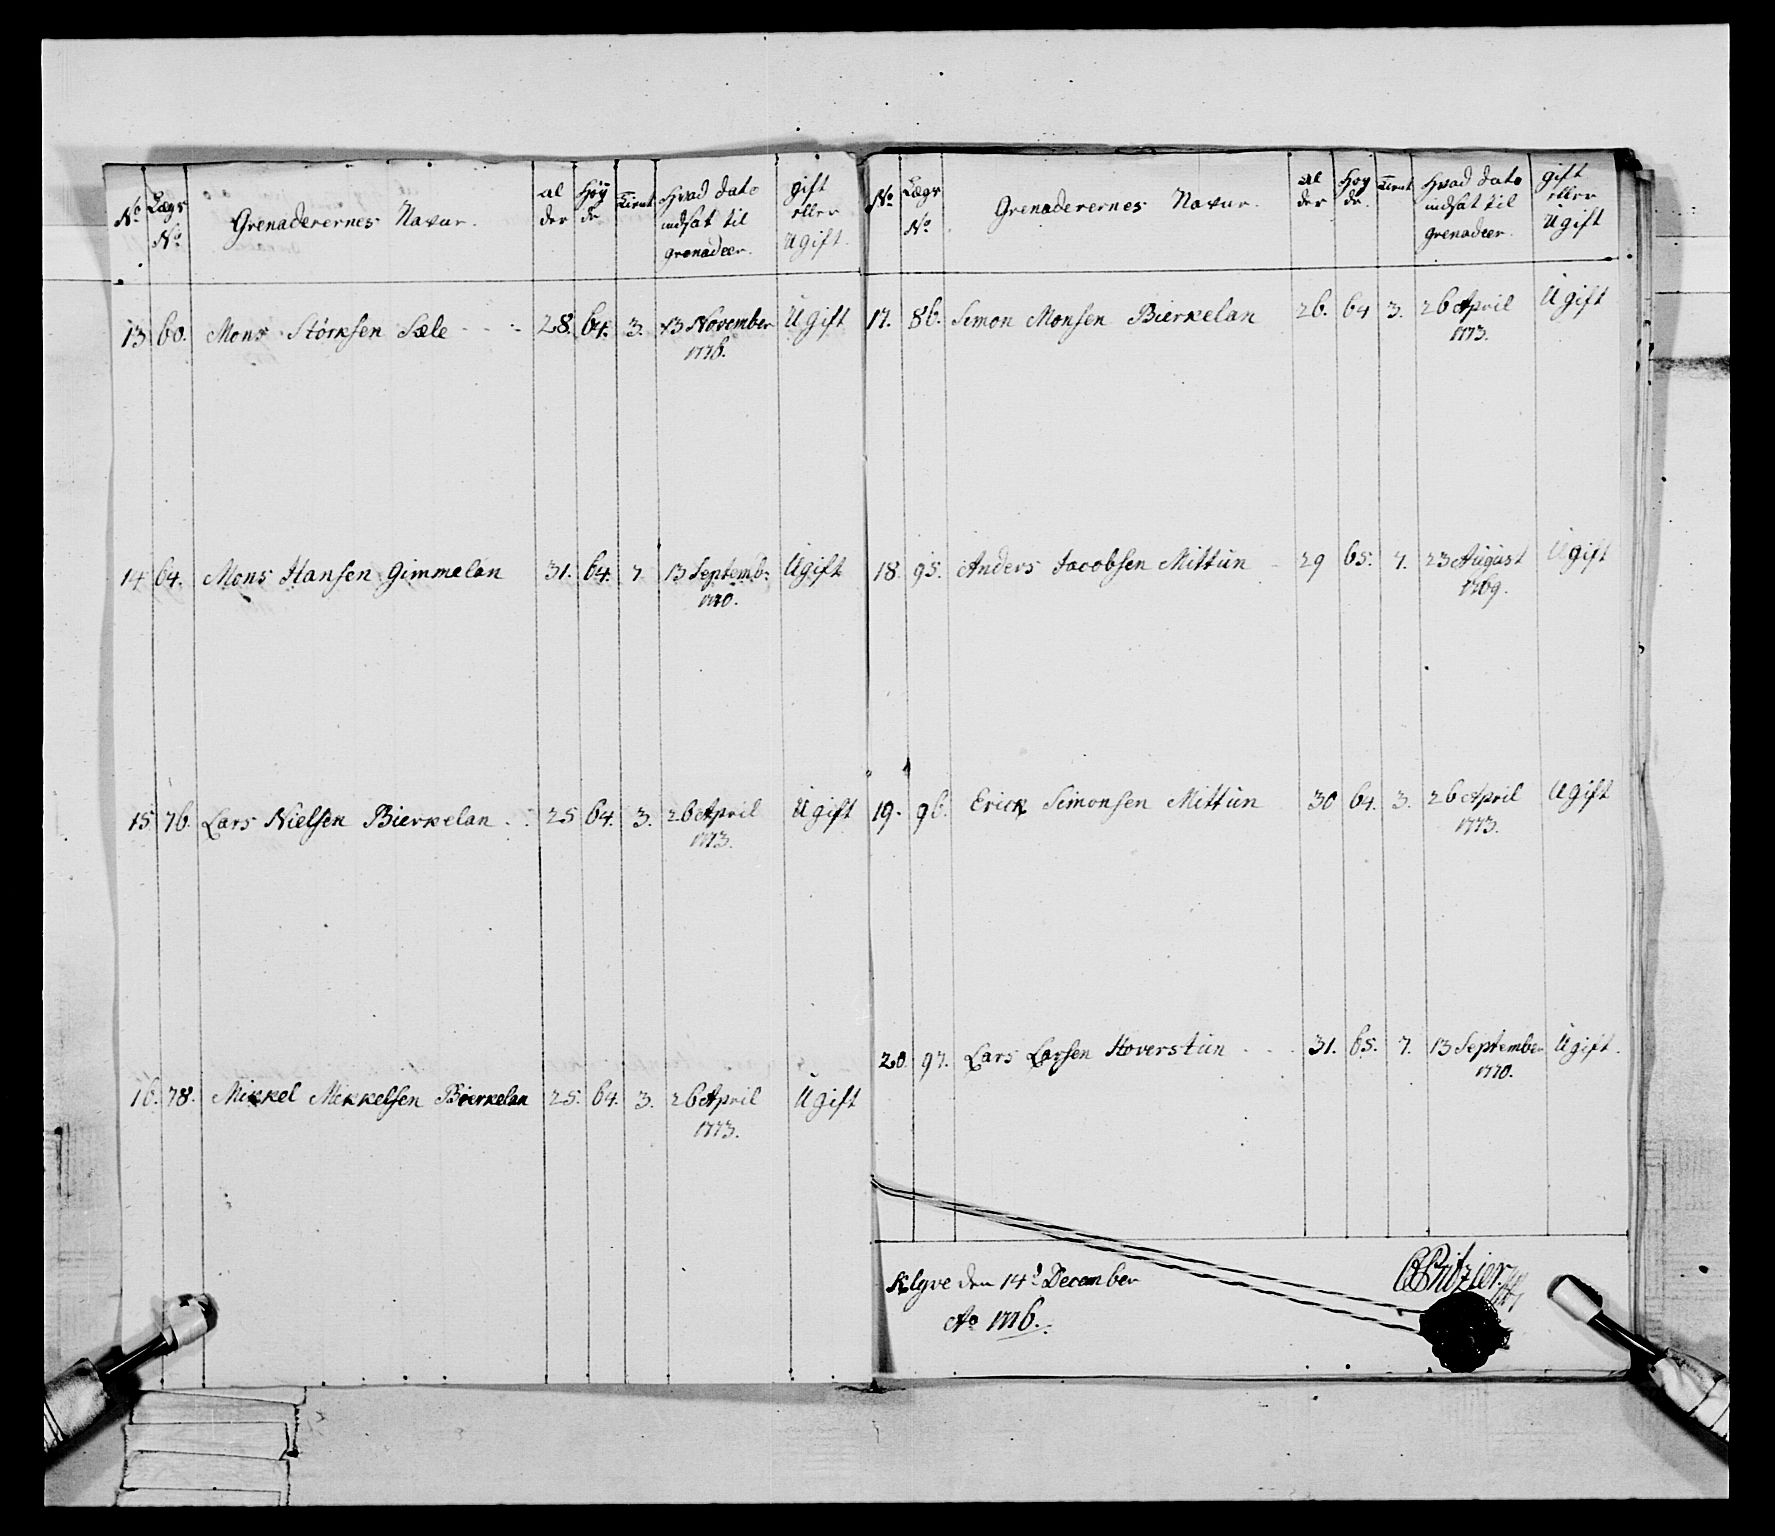 No Lægs No Grenaderernes Navne. al der Høy de Tient Hvad dato indsat til grenadeer. gift eller Ugift.
13 60. Mons Störksen Sæle 28. 64. 3. 13 November 1776. Ugift
14 64. Mons Hansen Gimmelan 31. 64. 7. 13 Septemb: 1770. Ugift
15 76. Lars Nielsen Bierkelan 25 64. 3. 26 April 1773. Ugift
16. 78. Mikkel Mikkelsen Bierkelan 25. 64. 3. 26 April 1773. Ugift
No Lægs No Grenaderernes Navne. al der Høy de. Tient Hvad dato indsat til grenadeer. gift eller Ugift
17. 86. Simon Monsen Bierkelan 26. 64 3. 26 April 1773. Ugift
18. 95. Anders Jacobsen Mittun 29 65. 7. 23 August 1769. Ugift
19. 96. Erick Simonsen Mittun 30 64. 3. 26 April 1773. Ugift
20. 97. Lars Larsen Hoverstun 31. 65. 7. 13 September 1770. Ugift.
Klyve den 14d December
Ao 1776.